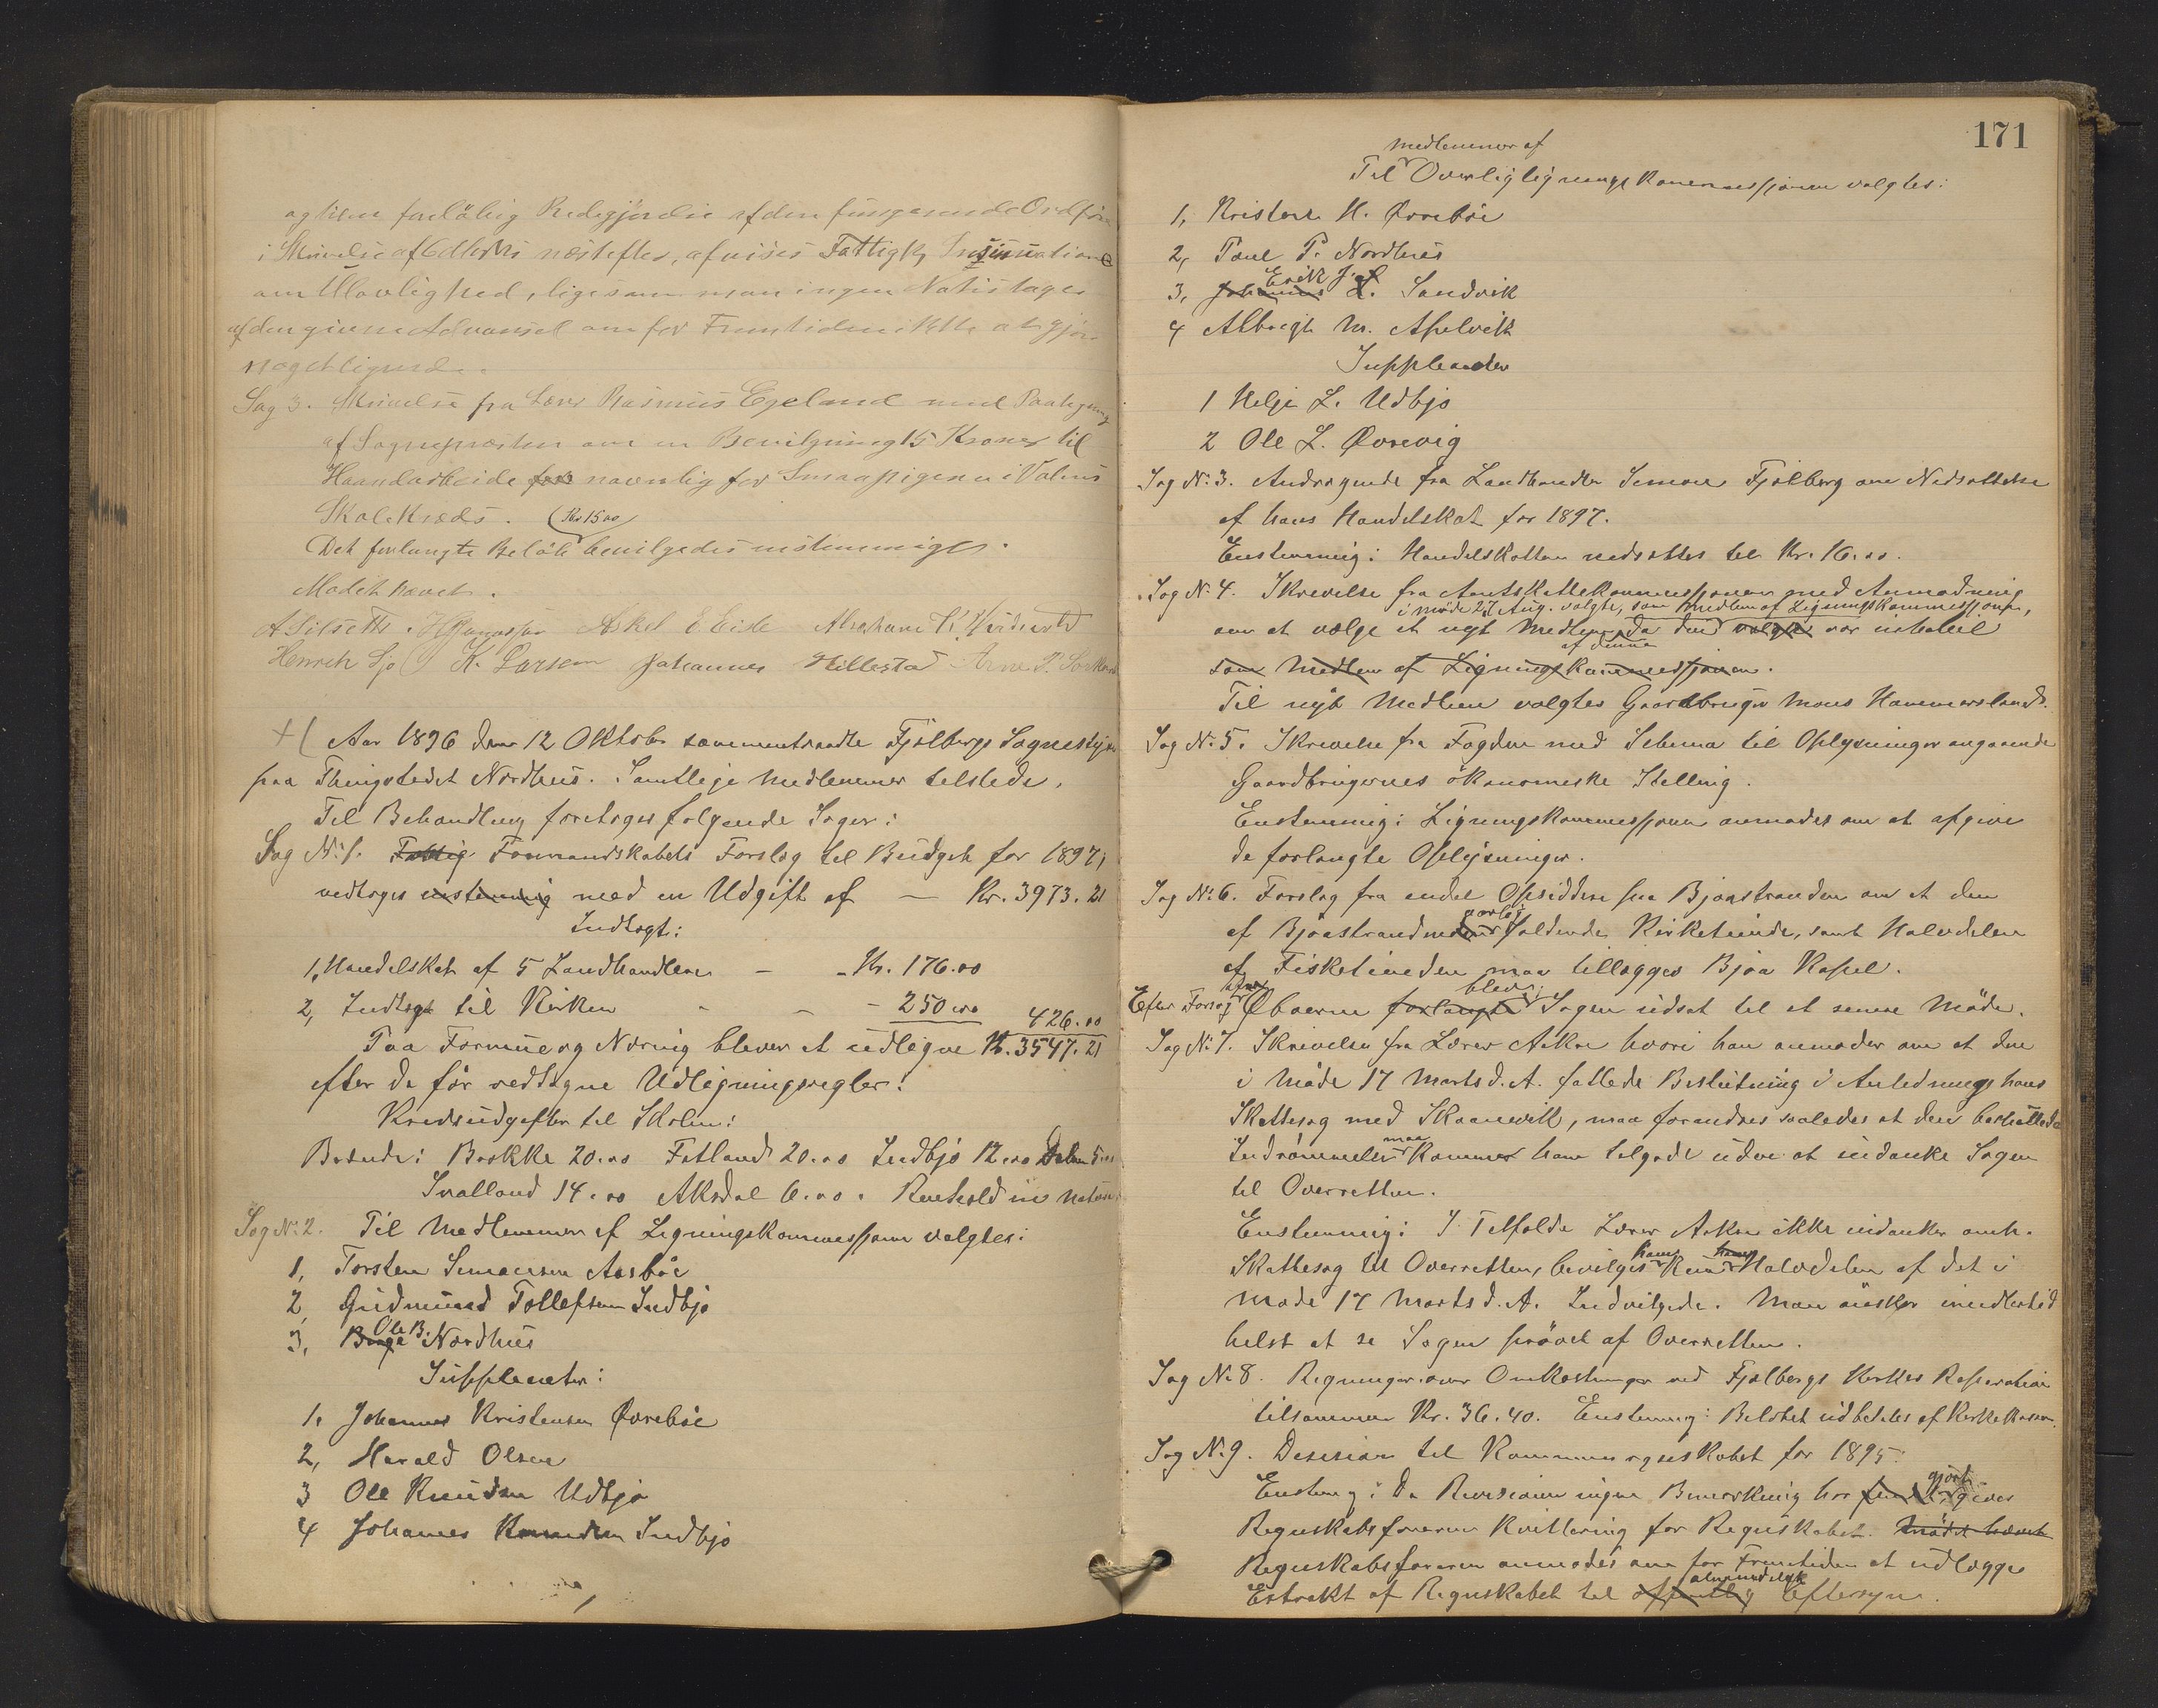 og tilen foreløbig Redegjørelse af den fungerende Ordfør
i Skrivelse af næstefter, afvises Fattigk, Insinuation
om Ulovlighed, ligesom man ingen Notis tager
af den givne Advarsel om for Fremtiden ikke at gjøre
noget lignende.
Sag 3. Skrivelse fra Lærer Rasmus Egeland med Paategning
af Sognepræsten om en Bevilgning 15 Kroner til
Haandarbeide for navnlig for Smaapigerne i Valens
Skolekreds. (Kr 15 00)
Det forlangte Beløb bevilgedes enstemmiges.
Mødet hævet.
A Silseth. Askel E Eide Abraham
Henrik Sjo K. Larsen Johannes Hillestad Arne P.
+( Aar 1896 den 12 Oktober sammentraadte Fjelbergs Sognestyre
paa Thingstedet Nordhus. Samtlige Medlemmer tilstede.
Til Behandling foretoges følgende Sager:
Sag No 1. Fattig Formandskabets Forslag til Budget for 1897,
vedtoges enstemmig med en Udgift af — Kr. 3973.21
Indtægt:
1, Handelskat af 5 Landhandlere - - Kr. 176.00
2, Indtægt til Kirken - - - 250.00 426.00
Paa Formue og Næring bliver at udligne Kr. 3547.21
efter de før vedtagne Udligningsregler.
Kredsudgifter til Skolen:
Brænde: Brekke 20.00 Fatland 20.00 Indbjo 12.00
Svalland 14.00 Aksdal 6.00. Renhold in natura
Sag No 2. Til Medlemmer af Ligningskommissjonen valgtes:
1, Torsten Simonsen Aarbøe
2, Gudmund Tollefsen Indbjo
3, Brage Ole B. Nordhus
Suppleanter:
1, Johannes Kristensen Øvrebøe
2, Harald Olsen
3 Ole Knudsen Udbjo
4 Johannes Knudsen Indbjo
171
medlemmer af
Til Overligligningskommissjonen valgtes:
1, Kristen H. Øvrebøe
2, Paul P. Nordhus
3, Johannes Erik J. L. Sandvik
4 Albregt M. Apelvik
Suppleanter
1 Helje L. Udbjo
2 Ole L. Øvrevig
Sag No: 3. Andragende fra Landhandler Simon Fjelberg om Nedsættelse
af hans Handelskat for 1897.
Enstemmig: Handelskatten nedsættes til Kr. 16.00.
Sag No 4. Skrivelse fra Amtskattekommissjonen med Anmodning
i møde 27 Aug. valgte, som Medlem af Ligningskommissjonen,
om at vælge et nyt Medlem da den valgte var inhabil
af denne
som Medlem af Ligningskommissjonen.
Til nyt Medlem valgtes Gaardbruger Mons Hammersland.
Sag No: 5. Skrivelse fra Fogden med Schema til Oplysninger angaaende
Gaardbrugernes økonomiske Stilling.
Enstemmig: Ligningskommissjonen anmodes om at afgive
de forlangte Oplysninger.
Sag No: 6. Forslag fra endel Opsiddere paa Bjoastranden om at den
af Bjoastranden aarlig faldende Kirketiende, samt Halvdelen
af Fisketienden maa tillægges Bjoa Kapel.
Efter Forslag af Øboerne forlangte blev Sagen udsat til et senere Møde.
Sag No 7. Skrivelse fra Lærer Aakre hvori han anmoder om at den
i Møde 17 Marts d. A. fattede Beslutning i Anledning hans
Skattesag med Skaanevik, maa forandres saaledes at den besluttede
Indrømmelse maa kommer ham tilgode uden at indanke Sagen
til Overretten.
Enstemmig: I Tilfælde Lærer Aakre ikke indanker omh.
Skattesag til Overretten, bevilges ham kun ham Halvdelen af det i
Møde 17 Marts d. A. Indvilgede. Man ønsker imidlertid
helst at se Sagen prøvet af Overretten.
Sag No 8. Regninger over Omkostninger ved Fjelbergs Kirkes Reparation
tilsammen Kr. 36.40. Enstemmig: Beløbet udbetales af Kirkekassen.
Sag No. 9. Desision til Kommuneregnskabet for 1895:
Enstemmig: Da Revisionen ingen Bemærkning har gjort gives
Regnskabsføreren Kvittering for Regnskabet. Mødet hævet
Regnskabsføreren anmodes om for Fremtiden at udlægge
Extrakt af Regnskabet til offentlig almindeligt Eftersyn.